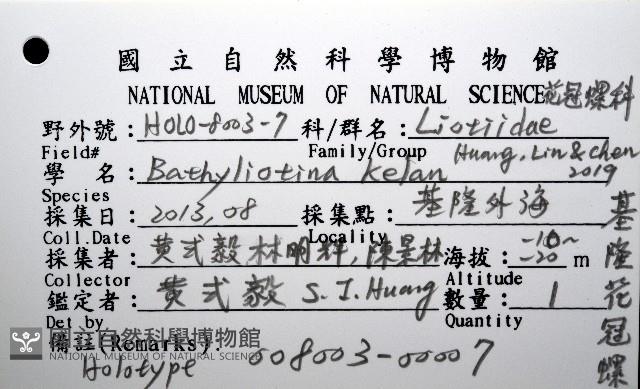 國立自然科學博物館
NATIONAL MUSEUM OF NATURAL SCIENCE 花冠螺科
野外號：HOLO-8003-7 科/群名：Liotiidae
Field# Family/Group Huang, Lin & chen
學 名：Bathyliotina kelan 2019
Species
採集日：2013,08 採集點：基隆外海
Coll.Date Locality
採集者：黄弍毅 林明群, 陳景林 海拔：-10~-20 m
Collector Altitude
鑑定者：黄弍毅 S.I.Huang 數量：1
Det by Quantity
備註(Remarks)： 008003-00007
Holotype
基隆花冠螺
國立自然科學博物館
NATIONAL MUSEUM OF NATURAL SCIENCE